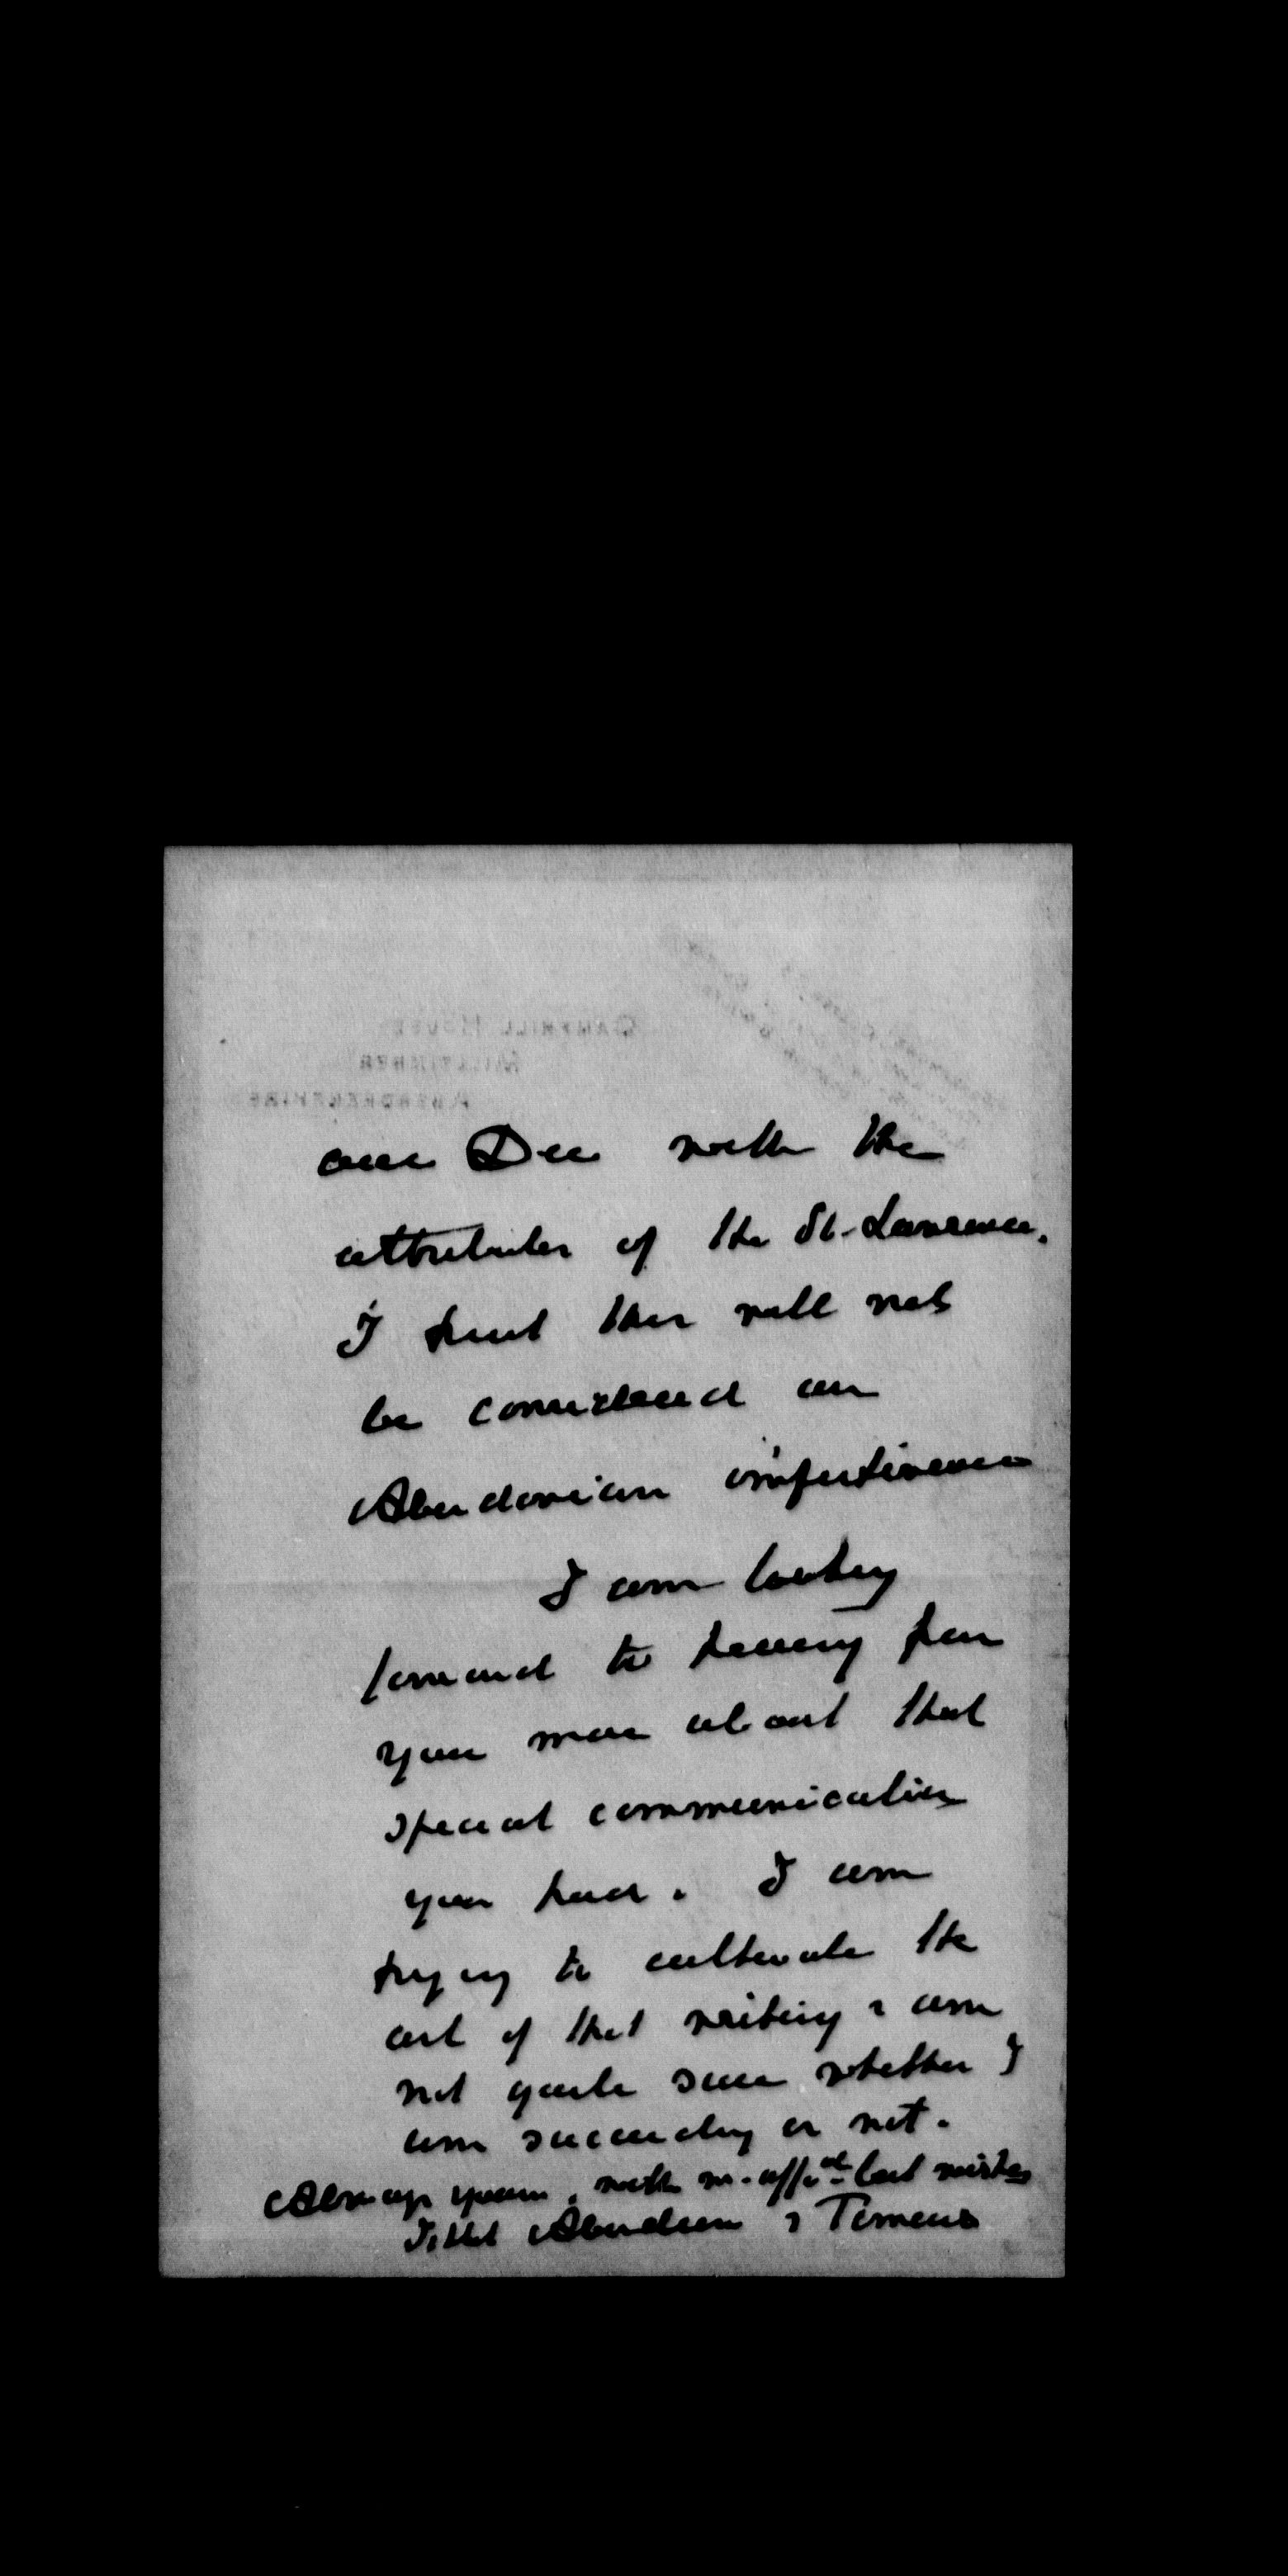 our Dee with the
attributes of the St. Lawrence.
I trust this will not
be considered an
Aberdonian impertinence
I am looking
forward to hearing from
you more about that
special communication
you had. I am
trying to cultivate the
art of that writing & am
not quite sure whether I
am succeeding or not.
Always yours, with m. affte. best wishes
Ishbel Aberdeen & Temair
CAMPHILL HOUSE
MILLTIMBER
ABERDEENSHIRE